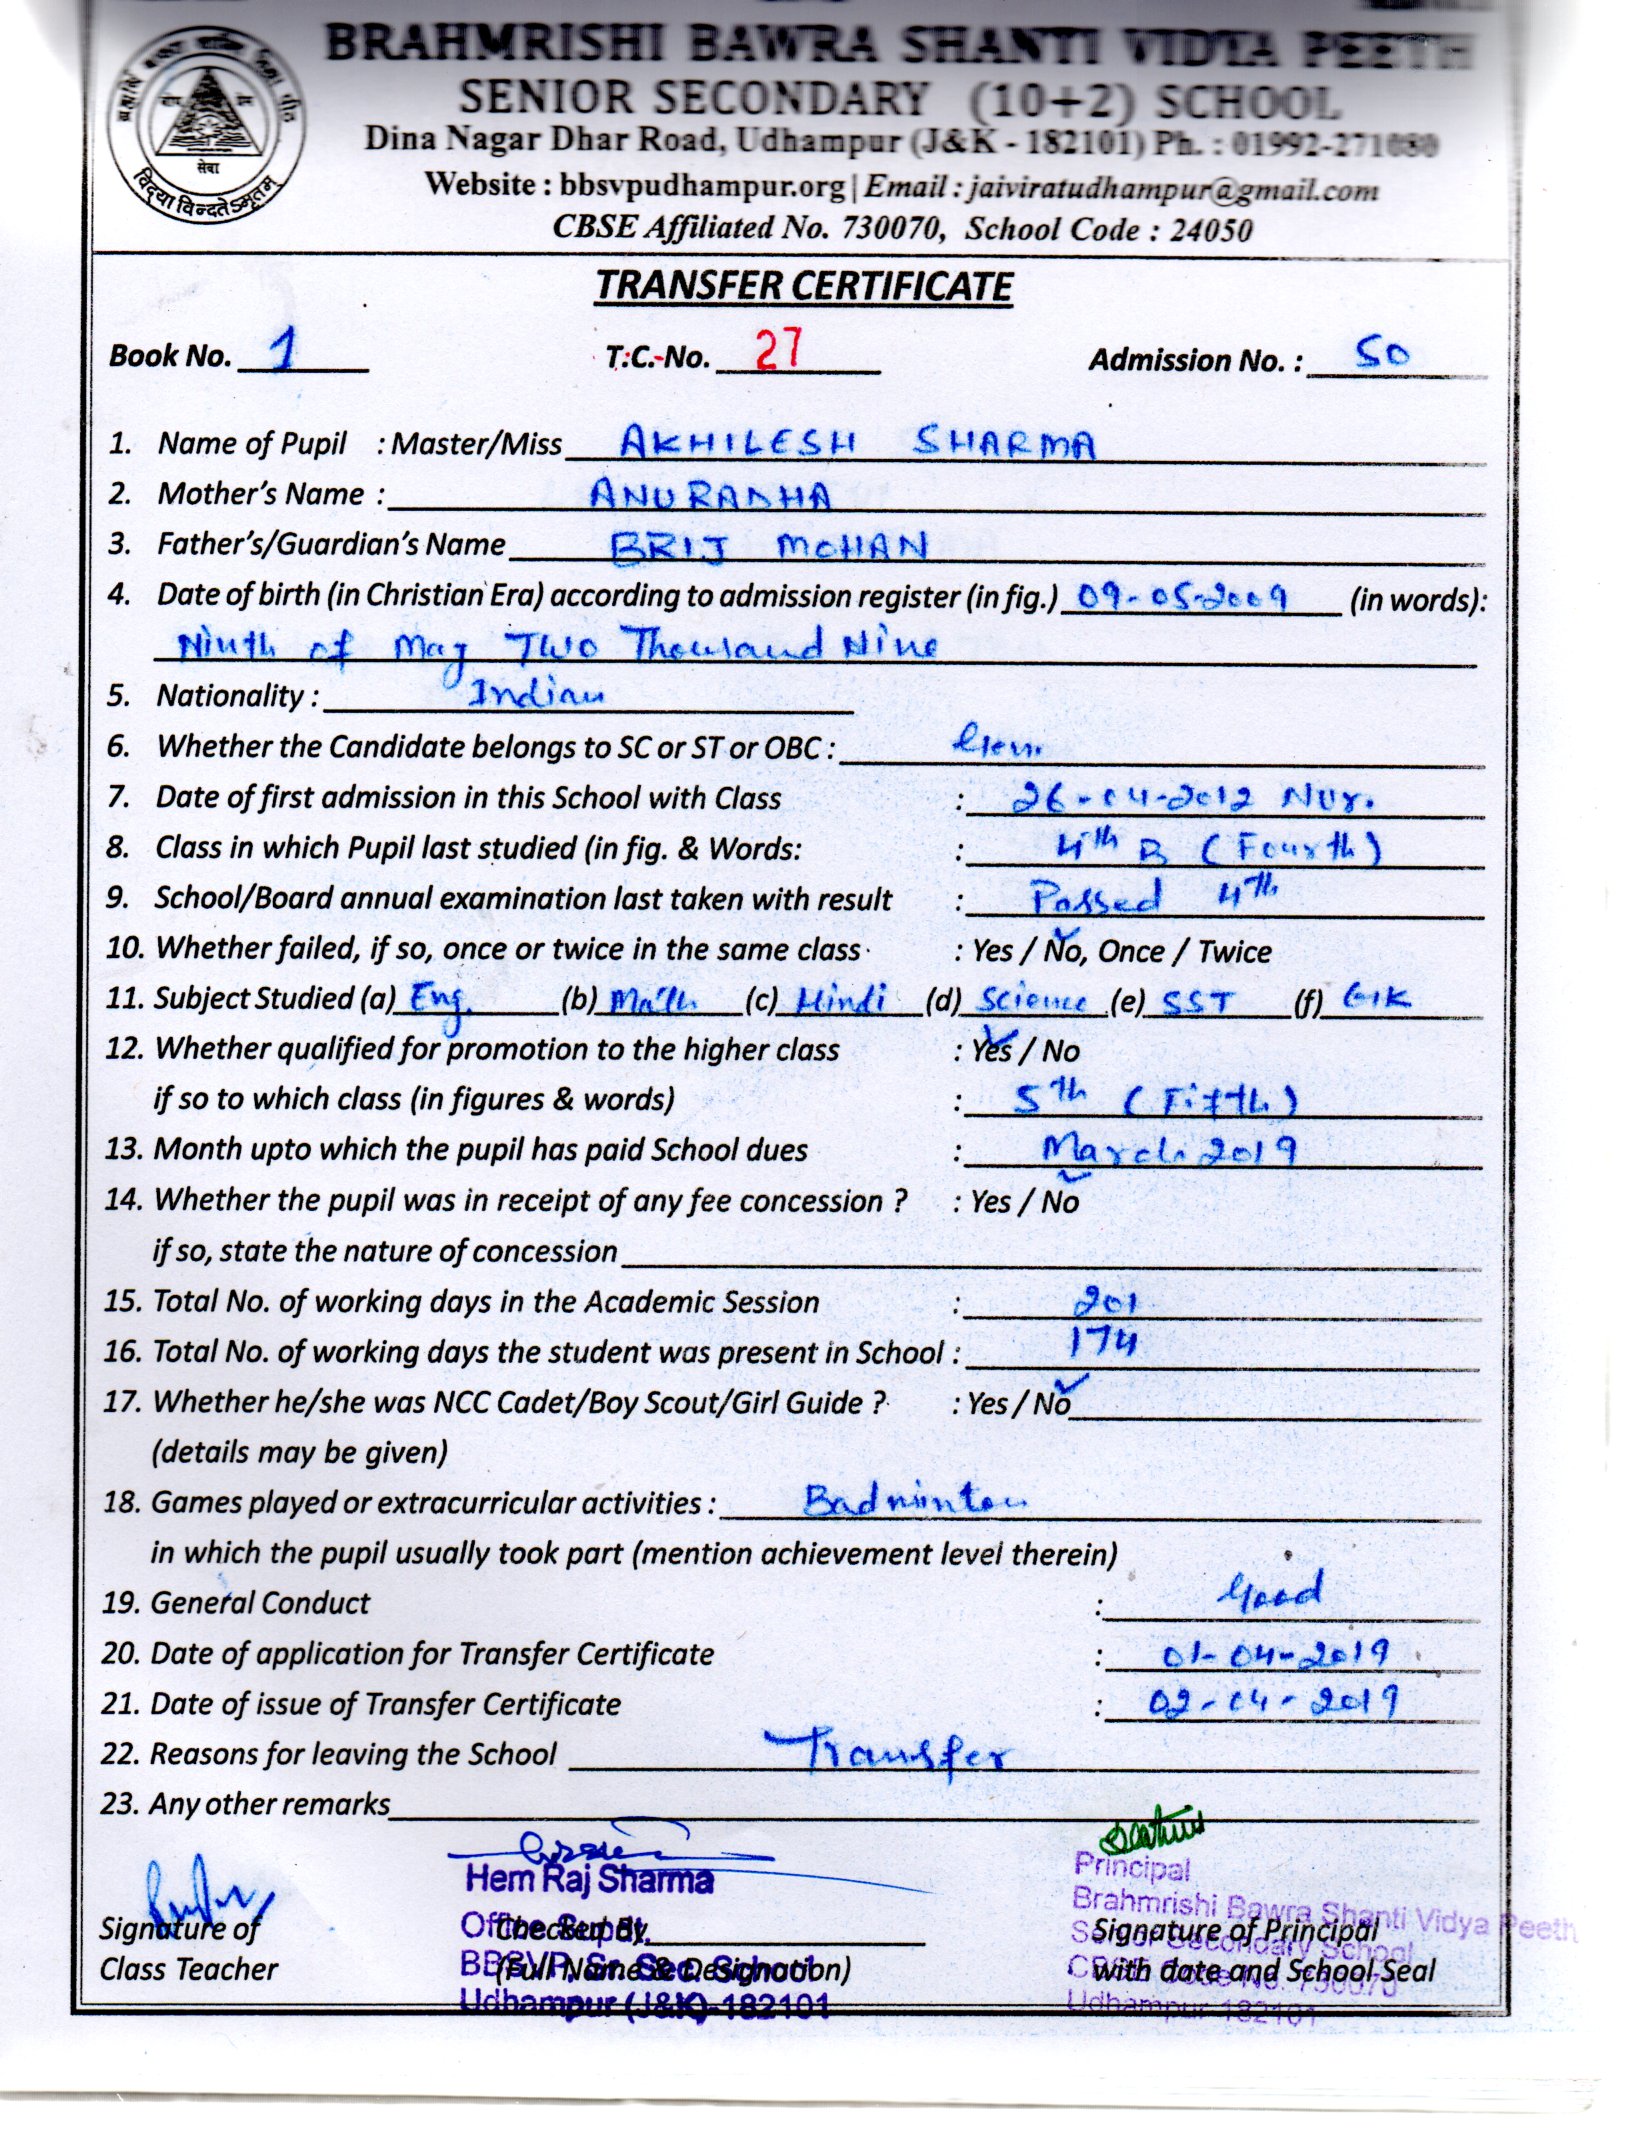 BRAHMRISHI BAWRA SHANTI VIDYA PEETH
SENIOR SECONDARY (10+2) SCHOOL
Dina Nagar Dhar Road, Udhampur (J&K - 182101) Ph. : 01992-271080
Website : bbsvpudhampur.org | Email : jaiviratudhampur@gmail.com
CBSE Affiliated No. 730070, School Code : 24050
सेवा
विद्या विन्दतेऽमृतम्
TRANSFER CERTIFICATE
Book No. 1 T.C. No. 27 Admission No. : 50
1. Name of Pupil : Master/Miss AKHILESH SHARMA
2. Mother's Name : ANURADHA
3. Father's/Guardian's Name BRIJ MOHAN
4. Date of birth (in Christian Era) according to admission register (in fig.) 09-05-2009 (in words):
Ninth of May Two Thousand Nine
5. Nationality : Indian
6. Whether the Candidate belongs to SC or ST or OBC : Gen.
7. Date of first admission in this School with Class : 26-04-2012 Nur.
8. Class in which Pupil last studied (in fig. & Words: : 4th B (Fourth)
9. School/Board annual examination last taken with result : Passed 4th
10. Whether failed, if so, once or twice in the same class : Yes / No, Once / Twice
11. Subject Studied (a) Eng. (b) Math (c) Hindi (d) Science (e) SST (f) GK
12. Whether qualified for promotion to the higher class : Yes / No
if so to which class (in figures & words) : 5th (Fifth)
13. Month upto which the pupil has paid School dues : March 2019
14. Whether the pupil was in receipt of any fee concession ? : Yes / No
if so, state the nature of concession
15. Total No. of working days in the Academic Session : 201
16. Total No. of working days the student was present in School : 174
17. Whether he/she was NCC Cadet/Boy Scout/Girl Guide ? : Yes / No
(details may be given)
18. Games played or extracurricular activities : Badminton
in which the pupil usually took part (mention achievement level therein)
19. General Conduct : Good
20. Date of application for Transfer Certificate : 01-04-2019
21. Date of issue of Transfer Certificate : 02-04-2019
22. Reasons for leaving the School Transfer
23. Any other remarks
Signature of
Class Teacher
Hem Raj Sharma
Office Supdt.
BBSVP. Sr. Sec. School
Udhampur (J&K)-182101
Checked By
(Full Name & Designation)
Principal
Brahmrishi Bawra Shanti Vidya Peeth
Senior Secondary School
CBSE Code No. 730070
Udhampur 182101
Signature of Principal
with date and School Seal